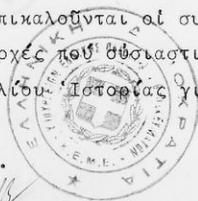 πικαλοῦνται οἱ συ
οχές πού οὐσιαστι
λίου Ἱστορίας γι
ΕΛΛΗΝΙΚΗ ΔΗΜΟΚΡΑΤΙΑ
Ε.Μ.Ε.